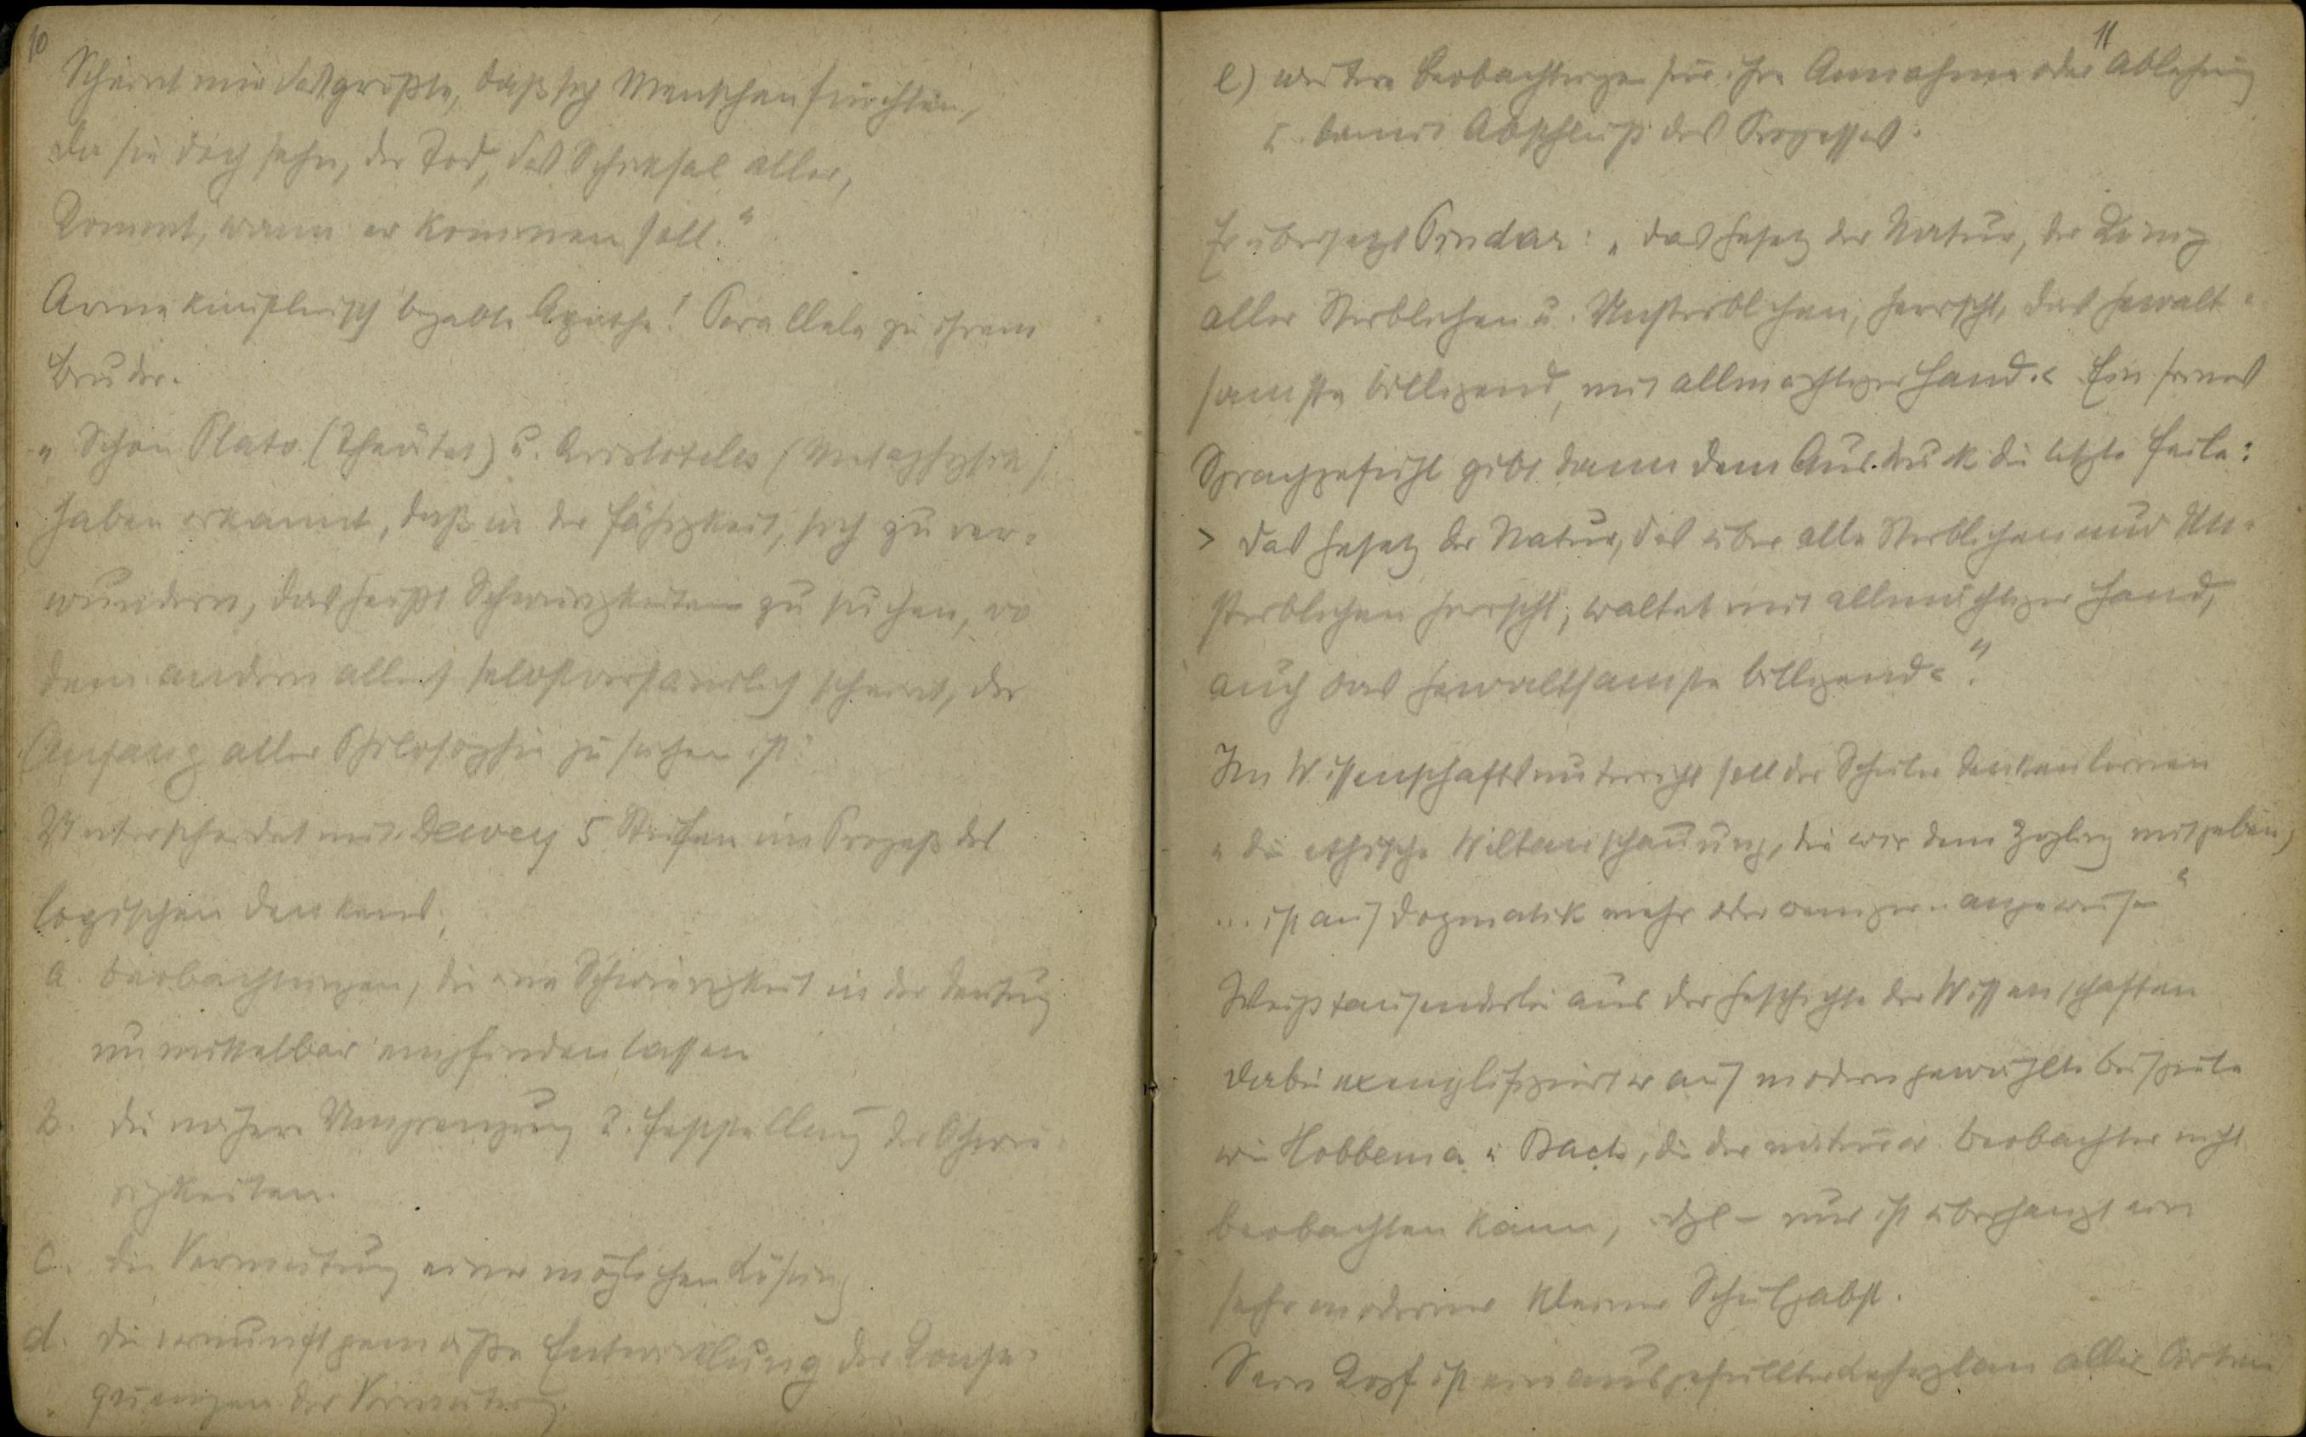 10
Scheint mir das größte, daß sich Menschen fürchten,
Da sie doch sehn, der Tod, das Schiksal aller,
Kommt, wann er kommen soll."
Arme künstlerisch begabte Agathe! Parallele zu ihrem
Bruder.
„Schon Plato (Theätet) u. Aristoteles (Metaphysik)
haben erkannt, daß in der Fähigkeit, sich zu ver-
wundern, das heißt Schwierigkeiten zu suchen, wo
dem andern alles selbstverständlich scheint, der
Anfang aller Philosophie zu suchen ist."
Unterscheidet mit Dewey 5 Stufen im Prozeß des
logischen Denkens.
a. Beobachtungen, die eine Schwierigkeit in der Deutung
unmittelbar empfinden lassen
b. die nähere Umgrenzung u. Feststellung der Schwie-
rigkeiten.
c. die Vermutung einer möglichen Lösung
d. die vernunftgemäße Entwicklung der Konse-
quenzen der Vermutung.
11
e) weitere Beobachtungen für ihre Annahme oder Ablehnung
u. damit Abschluß des Prozesses.
Er übersetzt Pindar: „das Gesetz der Natur, der König
aller Sterblichen u. Unsterblichen, herrscht, das Gewalt-
samste billigend, mit allmächtiger Hand.< Ein feines
Sprachgefühl gibt dann dem Ausdruck die letzte Feile:
> das Gesetz der Natur, das über alle Sterblichen und Un-
sterblichen herrscht, waltet mit allmächtiger Hand,
auch das Gewaltsamste billigend<".
Im Wissenschaftsunterricht soll der Schüler denken lernen
„die ethische Weltanschauung, die wir dem Zögling mitgeben,
... ist auf Dogmatik mehr oder weniger angewiesen"
Weiß tausenderlei aus der Geschichte der Wissenschaften
Dabei exemplifiziert er auf modern gewählte Beispiele
wie Hobbema u Bach, die der Beobachter nicht
beobachten kann, dgl – nur ist überhaupt ein
sehr moderner kleiner Schulpabst.
Sein Kopf ist ein ausgefüllter Lehrplan aller Arten